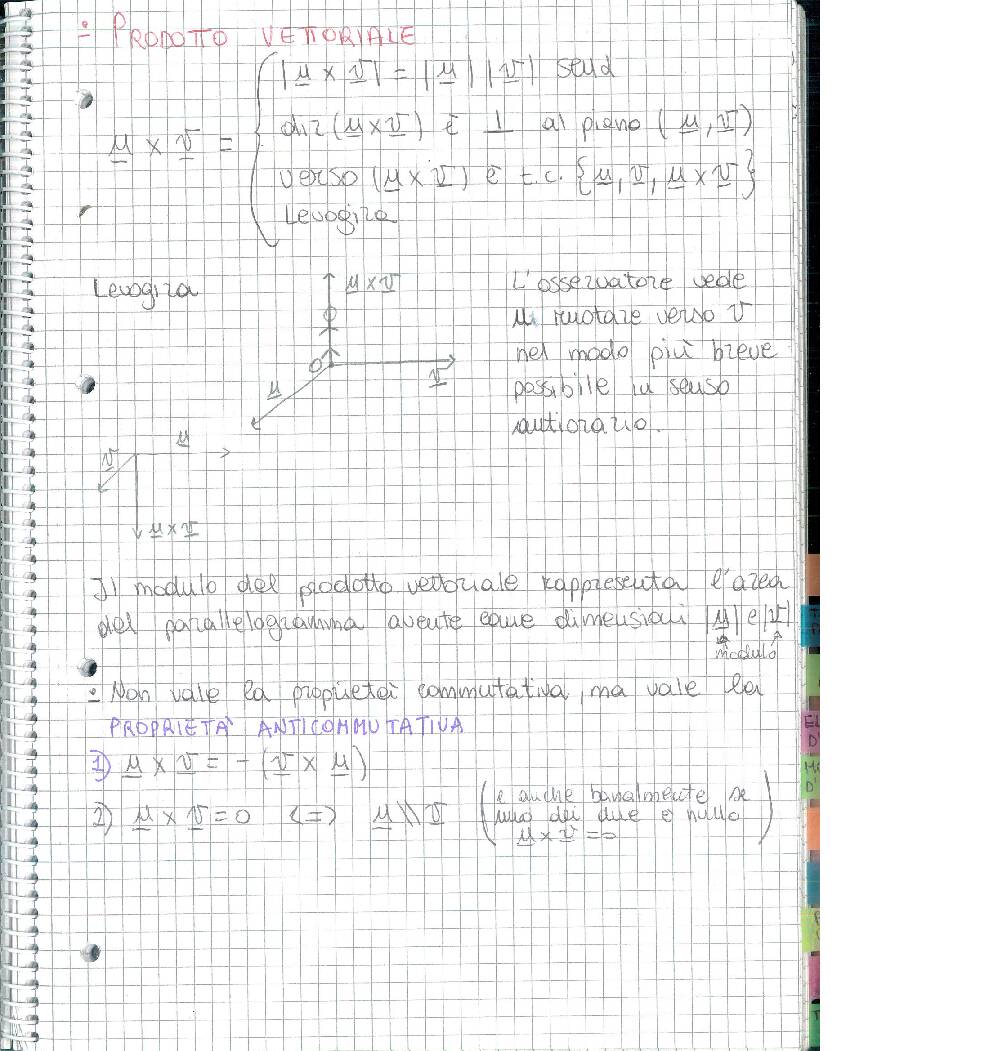 ÷ PRODOTTO VETTORIALE
|u × v| = |u| |v| senα
u × v =
dir (u × v) è ⊥ al piano (u, v)
verso (u × v) è t.c. {u, v, u × v}
Levogira
Levogira
u × v
L'osservatore vede
u ruotare verso v
nel modo più breve
possibile in senso
antiorario.
u
v
u
v
u × v
Il modulo del prodotto vettoriale rappresenta l'area
del parallelogramma avente come dimensioni |u| e |v|
modulo
÷ Non vale la proprietà commutativa, ma vale la
PROPRIETÀ ANTICOMMUTATIVA
1) u × v = - (v × u)
2) u × v = 0 <=> u \\ v (e anche banalmente se
uno dei due è nullo
u × v = 0)
EL
D'
MO
D'